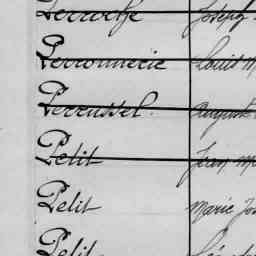 Perroche Joseph
Perronnerie Louis M
Perrussel. August
Petit Jean M
Petit Marie Jos
Petit